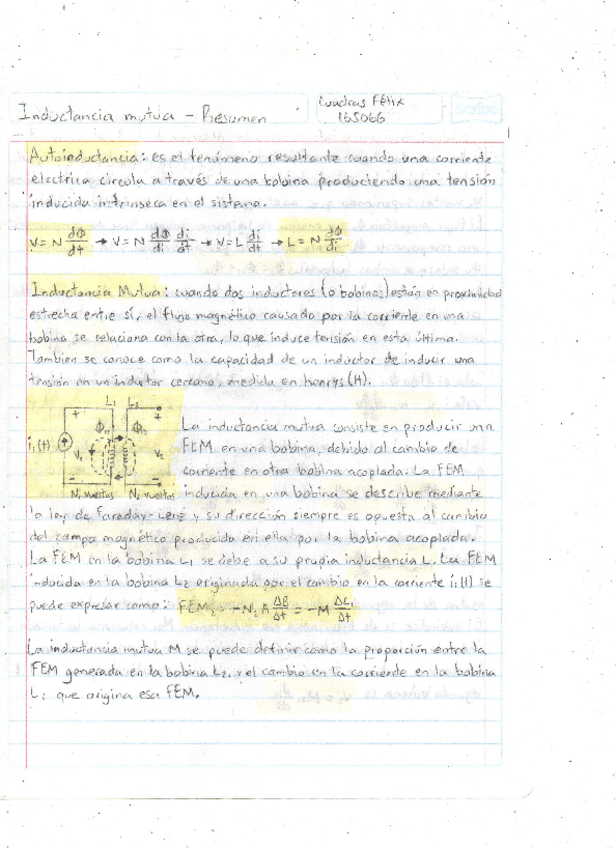 Inductancia mutua - Resumen
Cuadras Félix
165066
Scribe
1
Autoinductancia: es el fenómeno resultante cuando una corriente
electrica circula a través de una bobina produciendo una tensión
inducida intrínseca en el sistema.
V = N dΦ/dt → V = N dΦ/di di/dt → V = L di/dt → L = N dΦ/di
Inductancia Mutua: cuando dos inductores (o bobinas) están en proximidad
estrecha entre sí, el flujo magnético causado por la corriente en una
bobina se relaciona con la otra, lo que induce tensión en esta última.
Tambien se conoce como la capacidad de un inductor de inducir una
tensión en un inductor cercano, medida en henrys (H).
L₁ L₂
+ +
i₁(t) V₁ Φ₁₁ Φ₁₂ V₂
- -
N₁ vueltas N₂ vueltas
La inductancia mutua consiste en producir una
FEM en una bobina, debido al cambio de
corriente en otra bobina acoplada. La FEM
inducida en una bobina se describe mediante
la ley de Faraday-Lenz y su dirección siempre es opuesta al cambio
del campo magnético producido en ella por la bobina acoplada.
La FEM en la bobina L₁ se debe a su propia inductancia L. La FEM
inducida en la bobina L₂ originada por el cambio en la corriente i₁(t) se
puede expresar como: FEM₂ = -N₂A ΔB/Δt = -M Δi₁/Δt
La inductancia mutua M se puede definir como la proporción entre la
FEM generada en la bobina L₂, y el cambio en la corriente en la bobina
L₁ que origina esa FEM.